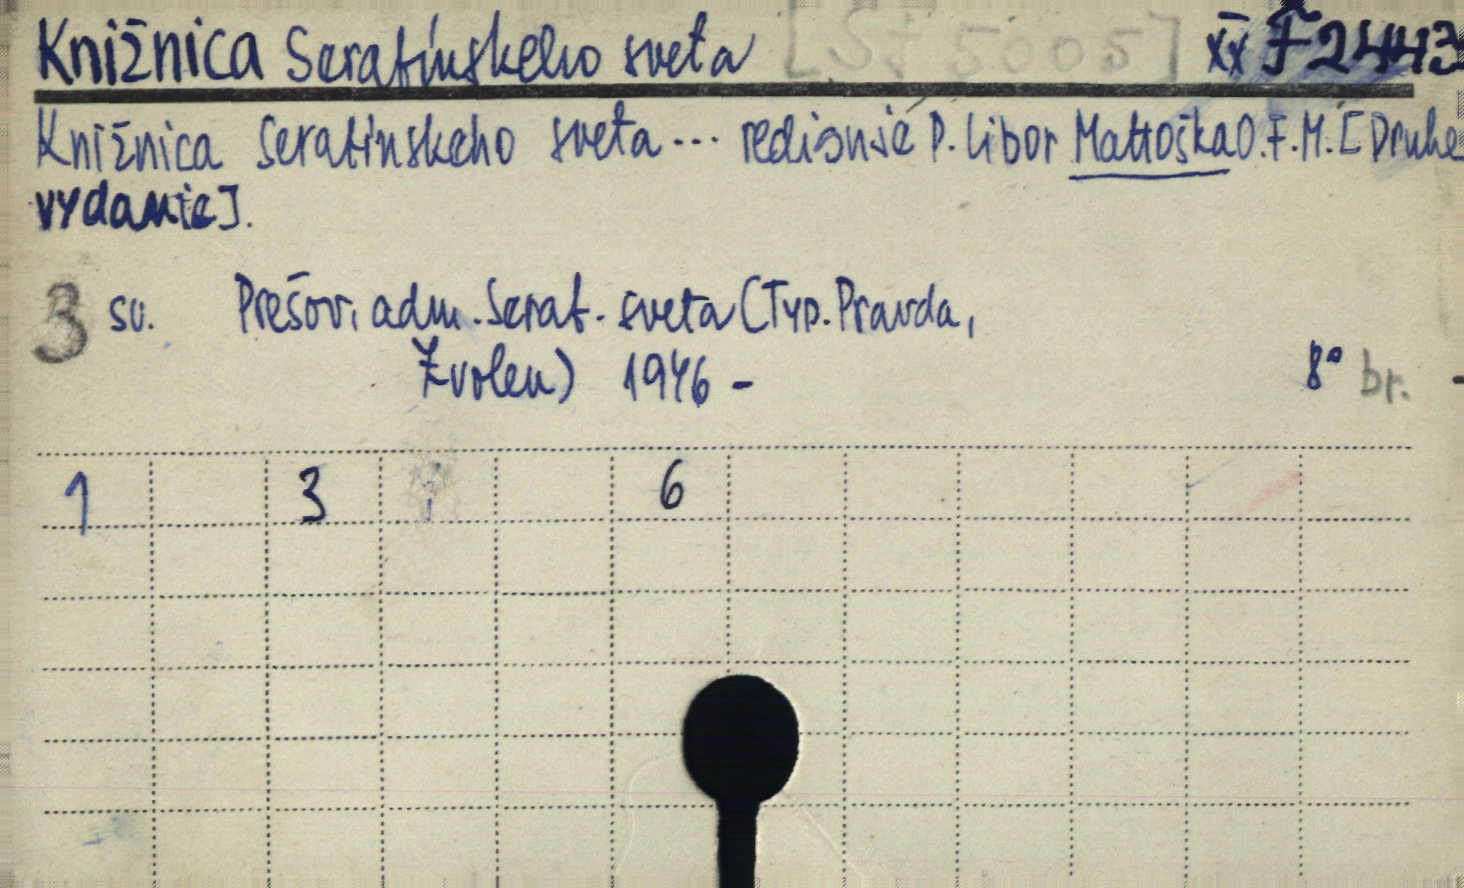 Knižnica Serafínskeho sveta [St 5005] XX F 2443
Knižnica Serafínskeho sveta... rediguje P. Libor Mattoška O.F.M. [Druhé
vydanie].
3 sv. Prešov, adm. Seraf. sveta (Typ. Pravda,
Zvolen) 1946 - 8° br.
1 3 6